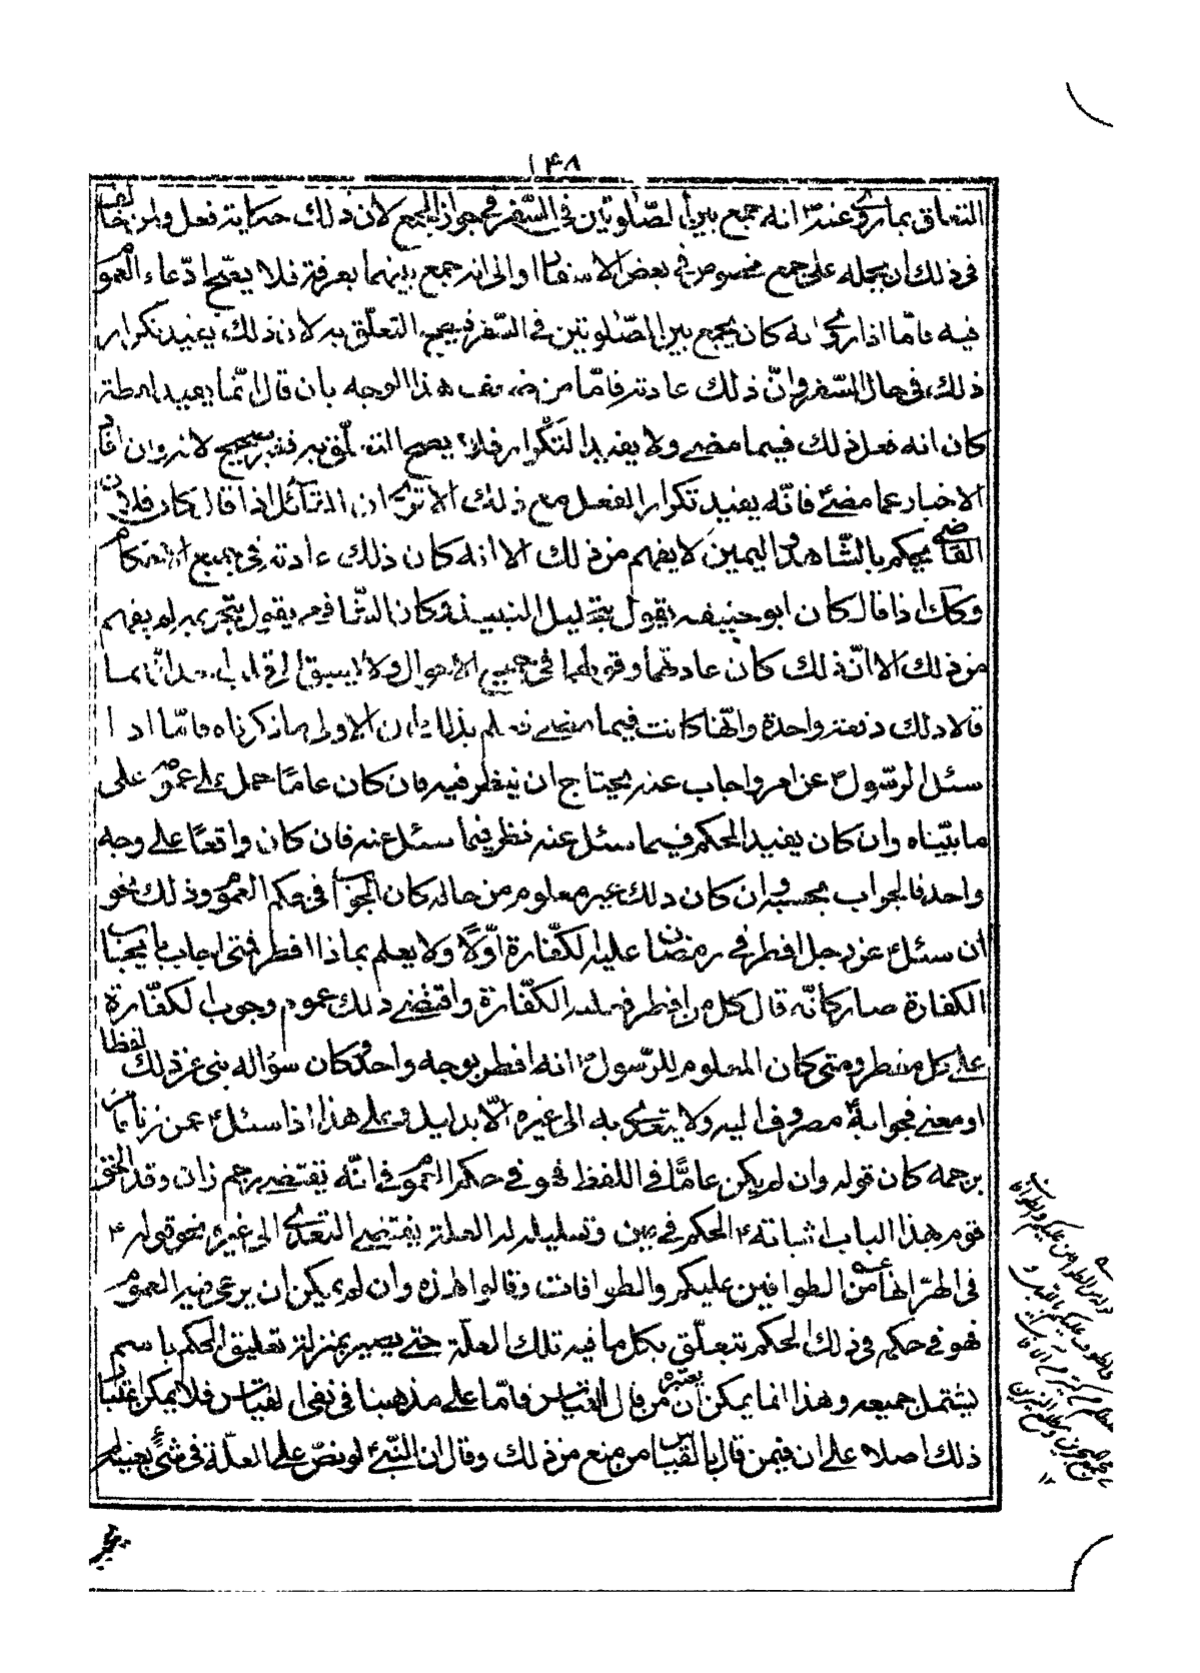 ١٤٨
التعلق بما روي عنه انه جمع بين الصلوتين في السّفر في جواز الجمع لان ذلك حكاية فعل ولمن خالف
في ذلك ان يحمله على جمع مخصوص في بعض الاسفار والى انه جمع بينهما بعرفة فلا يصّح ادّعاء العموم
فيه فامّا اذا روي انه كان يجمع بين الصّلوتين في السّفر فيصح التعلّق به لان ذلك يفيد تكرار
ذلك في حال السّفر وانّ ذلك عادته فامّا من ضعف هذا الوجه بان قال انّما يفيد لفظة
كان انه فعل ذلك فيما مضى ولا يفيد التكرار فلا يصح التعلّق به فغير صحيح لانه وان افاد
الاخبار عما مضى فانّه يفيد تكرار الفعل مع ذلك الا ترى ان القائل اذا قال كان فلان
القاضي يحكم بالشّاهد واليمين لا يفهم من ذلك الا انه كان ذلك عادته في جميع الاحكام
وكك اذا قال كان ابو حنيفه يقول بتحليل النبيذ وكان الشافعي يقول بتحريمه لم يفهم
من ذلك الا انّ ذلك كان عادتهما وقولهما في جميع الاحوال ولا يسبق الى قلب احد انّهما
قالا ذلك دفعة واحدة وانّها كانت فيما مضى فعلم بذلك ان الاولى ما ذكرناه فامّا اذا
سئل الرّسول عن امر واجاب عنه يحتاج ان ينظر فيه فان كان عامّا حمل على عمومه على
ما بيّناه وان كان يفيد الحكم فيما سئل عنه نظر فيما سئل عنه فان كان واقعًا على وجه
واحد فالجواب بحسبه وان كان ذلك غير معلوم من حاله كان الجواب في حكم العموم وذلك نحو
ان سئل عن رجل افطر في رمضان ما عليه الكفّارة اوّلًا ولا يعلم بماذا افطر فمتى اجاب بايجاب
الكفارة صار كانّه قال كل من افطر فعليه الكفّارة واقتضى ذلك عموم وجوب الكفّارة
على كل مفطر ومتى كان المعلوم للرّسول انه افطر بوجه واحد وكان سؤاله ينبي عن ذلك لفظا
او معنى فجوابه مصروف اليه ولا يتعدى به الى غيره الّا بدليل وعلى هذا اذا سئل عمن زنا فامر
برجمه كان قوله وان لم يكن عامًّا في اللفظ فهو في حكم العموم في انّه يقتضي رجم كل زان وقد الحق
قوم بهذا الباب اثباته الحكم في عين وتعليله له العلة يقتضي التعدي الى غيره نحو قوله
في الهرّ انها من الطوافين عليكم والطوافات وقالوا هذه وان لم يكن ان يرعى فيه العموم
فهو في حكمه في ذلك الحكم يتعلّق بكل ما فيه تلك العلّة حتى يصير بمنزلة تعليق الحكم باسم
يشتمل جميعه وهذا انما يمكن ان يعتبره من قال القياس فامّا على مذهبنا في نفي القياس فلا يمكن اعتبار
ذلك اصلا على ان فيمن قال بالقياس من منع من ذلك وقال ان النّبي لو نصّ على العلّة في شيء بعينه لم